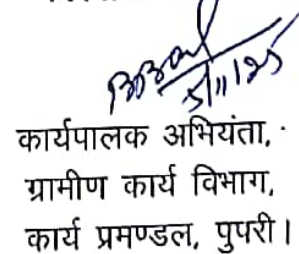 5/11/25
कार्यपालक अभियंता,
ग्रामीण कार्य विभाग,
कार्य प्रमण्डल, पुपरी।